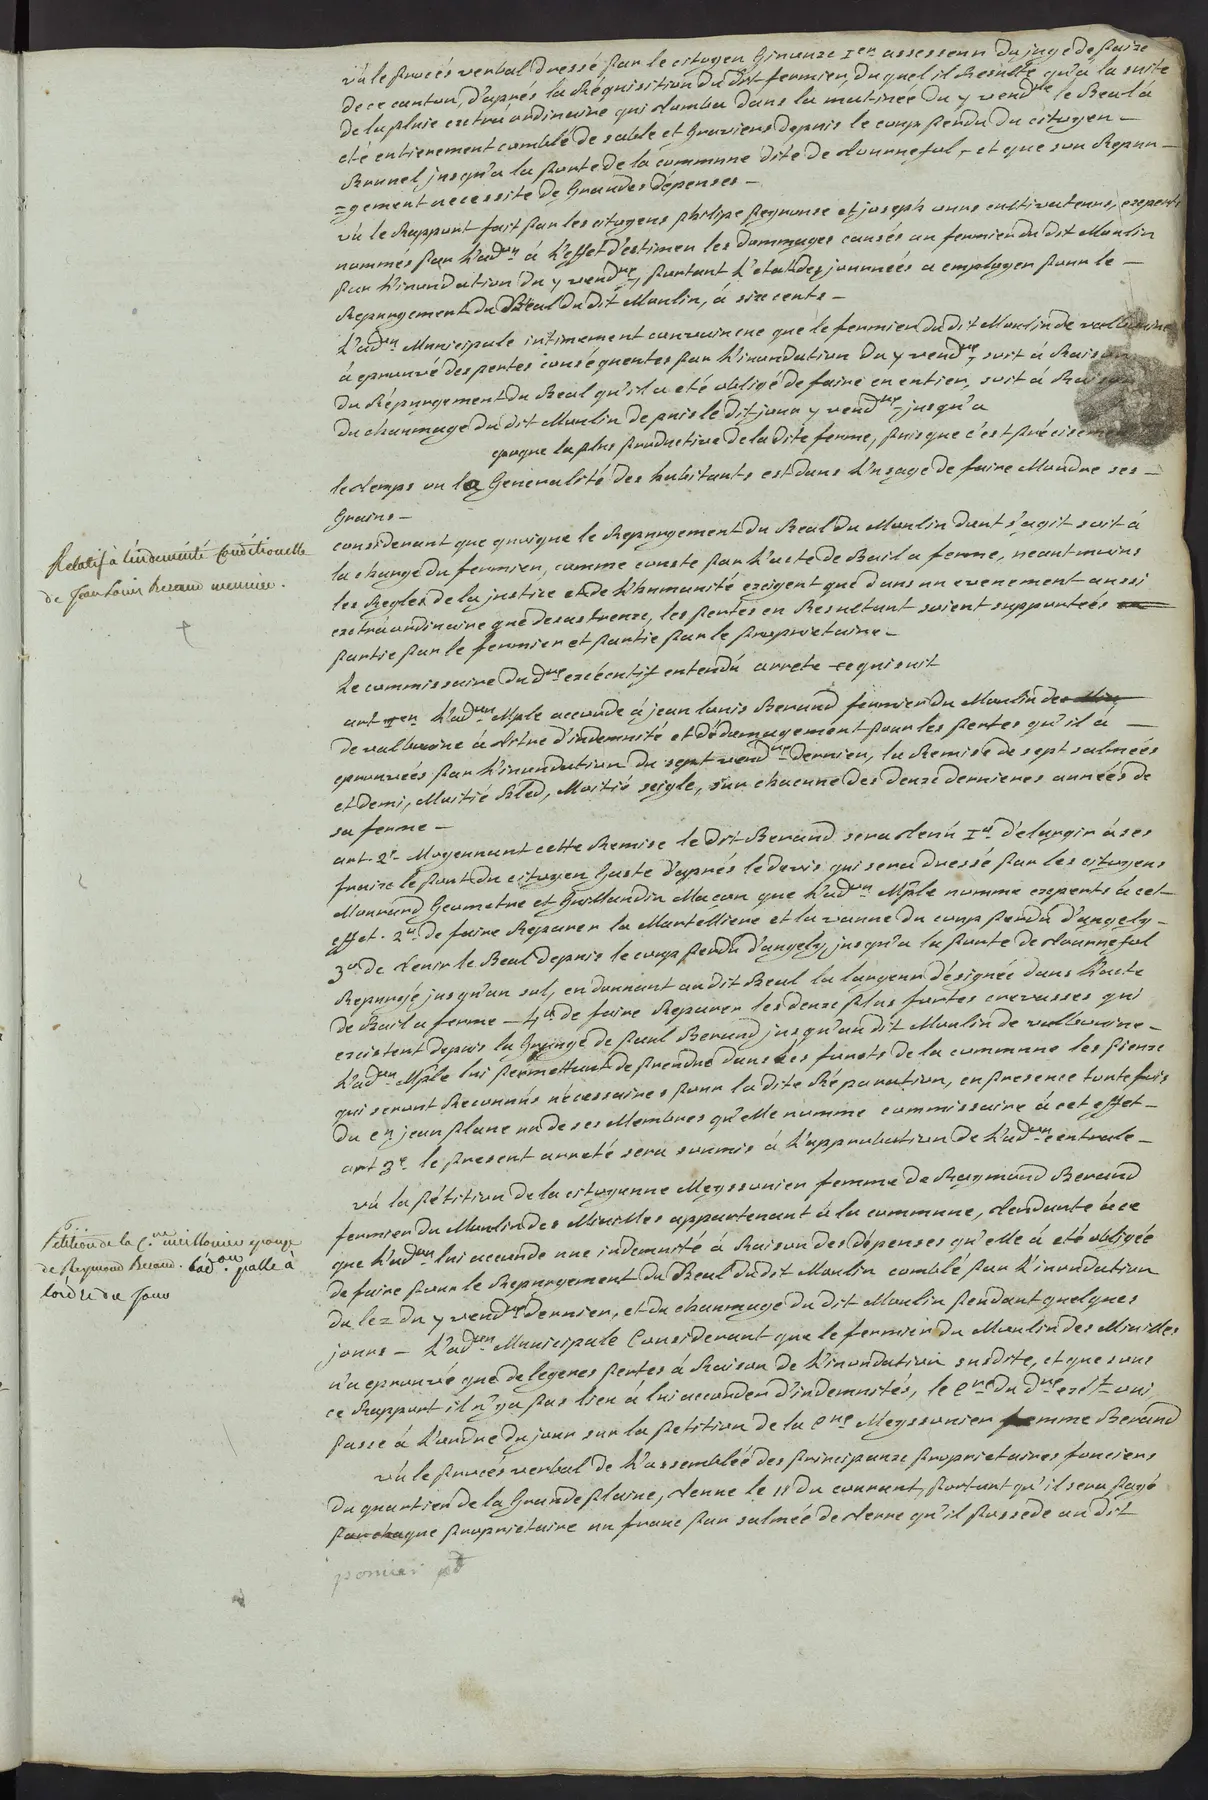 vu le procès verbal dressé par le citoyen Giraure Ier assesseur du juge de paix
de ce canton, d'après la Réquisition du dit fermier, du quel il Resulte qu'a la suite
de la pluie extraordinaire qui tomba dans la matinée du 7 vend.re le Beal à
eté entierement comblé de sable et Graviers depuis le coup perdu du citoyen —
Brunel jusqu'a la porte de la commune dite de tournefol, et que son Repur —
=gement necessite de Grandes dépenses —
vû le Rapport fait par les citoyens philipe peyrouse et joseph cultivateurs, experts
nommés par L'ad.on à L'effet d'estimer les dommages causés au fermier du dit Moulin
par L'inondation du 7 vend.re, portant L'etat des journées a employer pour le —
Repurgement du Béal du dit Moulin, à six cents —
L'ad.on Municipale intimement convaincue que le fermier du dit Moulin de
à eprouvé des pertes conséquentes par L'inondation du 7 vend.re, soit à Raison
du Répurgement du Beal qu'il a eté obligé de faire en entier, soit à Raison
du chaumage du dit Moulin depuis le dit jour 7 vend.re jusqu'a
epoque la plus productive de la dite ferme, puisque c'est précisement
le temps ou la Generalité des habitants est dans L'usage de faire Moudre ses —
Grains —
considerant que quoique le Repurgement du Beal du Moulin dont s'agit soit à
la charge du fermier, comme conste par L'acte de Bail a ferme, neant moins
les Regles de la justice et de L'humanité exigent que dans un evenement aussi
extraordinaire que desastreux, les pertes en Resultant soient supportées
partie par le fermier et partie par le proprietaire —
Relatif à L'indemnité Conditionelle
de Jean Louis Beraud meunier.
Le commissaire du d.re exécutif entendu arrete ce qui suit
art 1er L'ad.on Mple accorde à jean louis Beraud fermier du Moulin des Min
de valbonne à titre d'indemnité et dédomagement pour les pertes qu'il à —
eprouvées par L'inondation du sept vend.re dernier, la Remise de sept salmées
et demi, Moitié Bled, Moitié seigle, sur chacune des deux dernieres années de
sa ferme —
art. 2e Moyennant cette Remise le dit Beraud sera tenu 1o d'elargir à ses
fraix le pont du citoyen Gaste d'après le devis qui sera dressé par les citoyens
Mouraud Geometre et Guillandin Macon que L'ad.on Mple nomme experts à cet
effet. 2o de faire Reparer la Martelliere et la vanne du coup perdu d'angely —
3o de tenir le Beal depuis le coup perdu d'angely, jusqu'a la porte de tournefol
Repurgé jusqu'au sol, en donnant au dit Beal la largeur désignée dans L'acte
de Bail a ferme — 4o de faire Reparer les deux plus fortes crevasses qui
existent depuis la Grange de paul Beraud jusqu'au dit Moulin de valbonne —
L'ad.on Mple lui permettant de prendre dans les forets de la commune les pieux
qui seront Reconnus nécessaires pour la dite Réparation, en presence toute fois
du c.n jean plane un de ses Membres qu'elle nomme commissaire à cet effet —
art 3e le present arreté sera soumis à L'approbation de L'ad.on centrale —
vu la pétition de la citoyenne Meyssonier femme de Raymond Beraud
fermier du Moulin des Minilles appartenant à la commune, tendante à ce
que L'ad.on lui accorde une indemnité à Raison des dépenses qu'elle à eté obligée
de faire pour le Repurgement du Beal du dit Moulin comblé par L'inondation
du lez du 7 vend.re dernier, et du chaumage du dit Moulin pendant quelques
jours — L'ad.on Municipale Considerant que le fermier du Moulin des Minilles
n'a eprouvé que de legeres pertes à Raison de L'inondation susdite, et que sous
ce Rapport il n'y a pas lieu à lui accorder d'indemnités, le c.re du d.re ex.if oui,
passe à L'ordre du jour sur la petition de la c.ne Meyssonier femme Beraud
Pétition de la C.ne meissonier epouze
de Reymond Beraud. L'ad.on passe à
l'ordre du Jour
vû le procés verbal de L'assemblée des principaux proprietaires fonciers
du quartier de la Grande plaine, tenue le 11 du courant, portant qu'il sera payé
par chaque proprietaire un franc par salmée de terre qu'il possede au dit